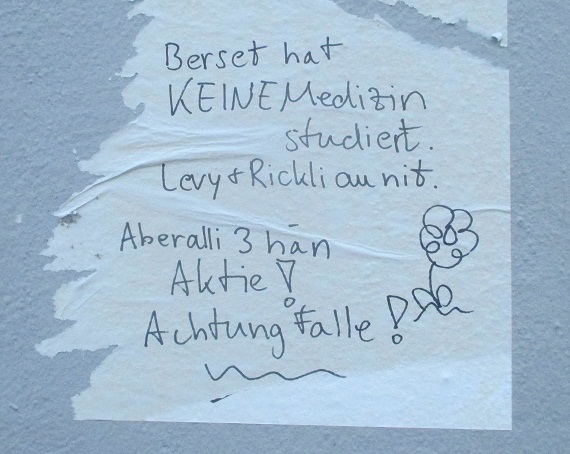 Berset hat
KEINE Medizin
studiert.
Levy & Rickli au nit.
Aber alli 3 hän
Aktie !
Achtung Falle !